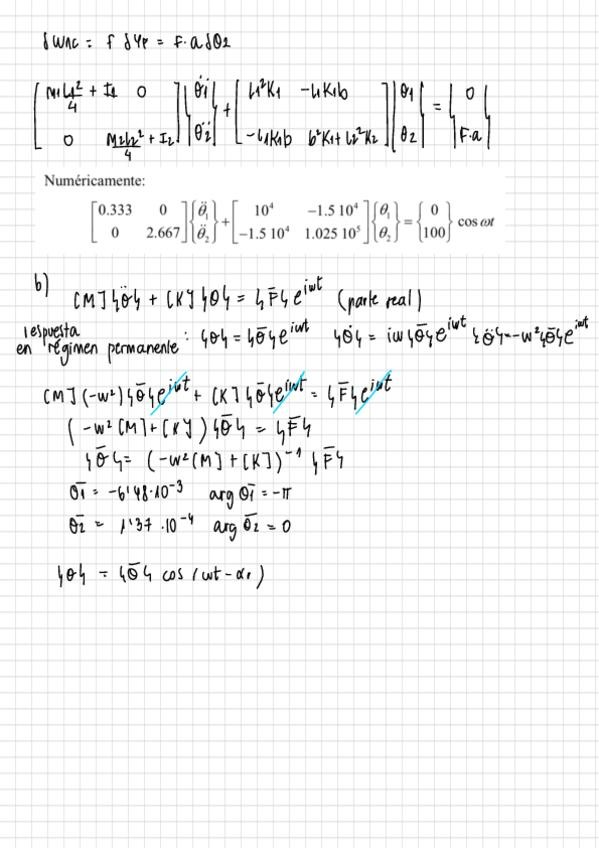 δWnc = F δYF = F·a δθ2
[ M1L1²/4 + I1 0 ; 0 M2L2²/4 + I2 ] { θ̈1 ; θ̈2 } + [ L1²K1 -L1K1b ; -L1K1b b²K1+L2²K2 ] { θ1 ; θ2 } = { 0 ; F·a }
Numéricamente:
[ 0.333 0 ; 0 2.667 ] { θ̈₁ ; θ̈₂ } + [ 10⁴ -1.5 10⁴ ; -1.5 10⁴ 1.025 10⁵ ] { θ₁ ; θ₂ } = { 0 ; 100 } cos ωt
b)
[M]{θ̈} + [K]{θ} = {F̄}e^iwt (parte real)
respuesta
en régimen permanente: {θ} = {θ̄}e^iwt {θ̇} = iw{θ̄}e^iwt {θ̈} = -w²{θ̄}e^iwt
[M](-w²){θ̄}e^iwt + [K]{θ̄}e^iwt = {F̄}e^iwt
(-w²[M]+[K]){θ̄} = {F̄}
{θ̄} = (-w²[M]+[K])⁻¹ {F̄}
θ̄1 = -6'48·10⁻³ arg θ̄1 = -π
θ̄2 = 1'37·10⁻⁴ arg θ̄2 = 0
{θ} = {θ̄} cos(wt - αr)